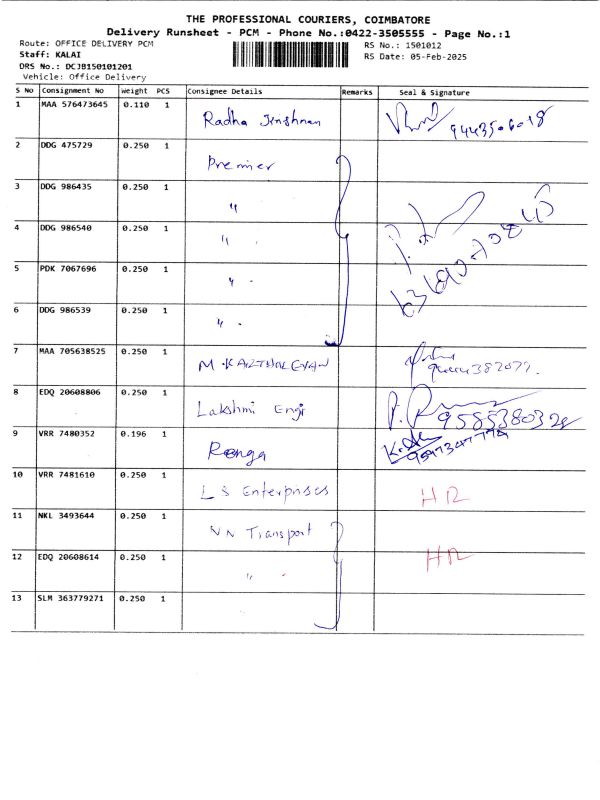 THE PROFESSIONAL COURIERS, COIMBATORE
Delivery Runsheet - PCM - Phone No.:0422-3505555 - Page No.:1
Route: OFFICE DELIVERY PCM RS No.: 1501012
Staff: KALAI RS Date: 05-Feb-2025
DRS No.: DCJB150101201
Vehicle: Office Delivery
S No Consignment No Weight PCS Consignee Details Remarks Seal & Signature
1 MAA 576473645 0.110 1 Radha
2 DDG 475729 0.250 1 Premier
3 DDG 986435 0.250 1 "
4 DDG 986540 0.250 1 "
5 PDK 7067696 0.250 1 "
6 DDG 986539 0.250 1 "
7 MAA 705638525 0.250 1 M
8 EDQ 20608806 0.250 1 Lakshmi Engi
9 VRR 7480352 0.196 1 Renga 9597347774
10 VRR 7481610 0.250 1 LS Enterprises HR
11 NKL 3493644 0.250 1 VN Transport
12 EDQ 20608614 0.250 1 " HR
13 SLM 363779271 0.250 1